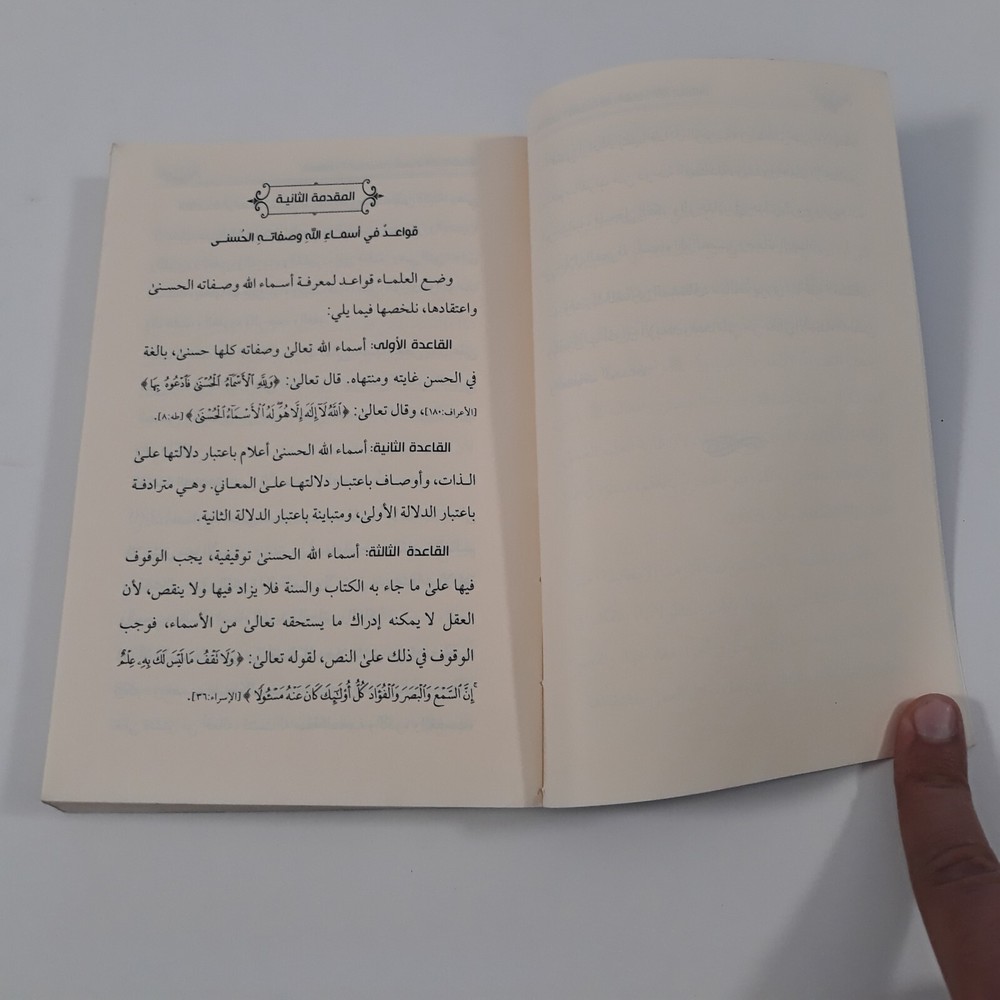 المقدمة الثانية
قواعدُ في أسماءِ اللهِ وصفاتهِ الحُسنى
وضع العلماء قواعد لمعرفة أسماء الله وصفاته الحسنىٰ
واعتقادها، نلخصها فيما يلي:
القاعدة الأولى: أسماء الله تعالىٰ وصفاته كلها حسنىٰ، بالغة
في الحسن غايته ومنتهاه. قال تعالىٰ: ﴿وَلِلَّهِ ٱلْأَسْمَآءُ ٱلْحُسْنَىٰ فَٱدْعُوهُ بِهَا﴾
[الأعراف:١٨٠]، وقال تعالىٰ: ﴿ٱللَّهُ لَآ إِلَٰهَ إِلَّا هُوَ لَهُ ٱلْأَسْمَآءُ ٱلْحُسْنَىٰ﴾ [طه:٨].
القاعدة الثانية: أسماء الله الحسنىٰ أعلام باعتبار دلالتها علىٰ
الذات، وأوصاف باعتبار دلالتها علىٰ المعاني. وهي مترادفة
باعتبار الدلالة الأولىٰ، ومتباينة باعتبار الدلالة الثانية.
القاعدة الثالثة: أسماء الله الحسنىٰ توقيفية، يجب الوقوف
فيها علىٰ ما جاء به الكتاب والسنة فلا يزاد فيها ولا ينقص، لأن
العقل لا يمكنه إدراك ما يستحقه تعالىٰ من الأسماء، فوجب
الوقوف في ذلك علىٰ النص، لقوله تعالىٰ: ﴿وَلَا تَقْفُ مَا لَيْسَ لَكَ بِهِۦ عِلْمٌ
إِنَّ ٱلسَّمْعَ وَٱلْبَصَرَ وَٱلْفُؤَادَ كُلُّ أُو۟لَٰٓئِكَ كَانَ عَنْهُ مَسْـُٔولًا﴾ [الإسراء:٣٦].